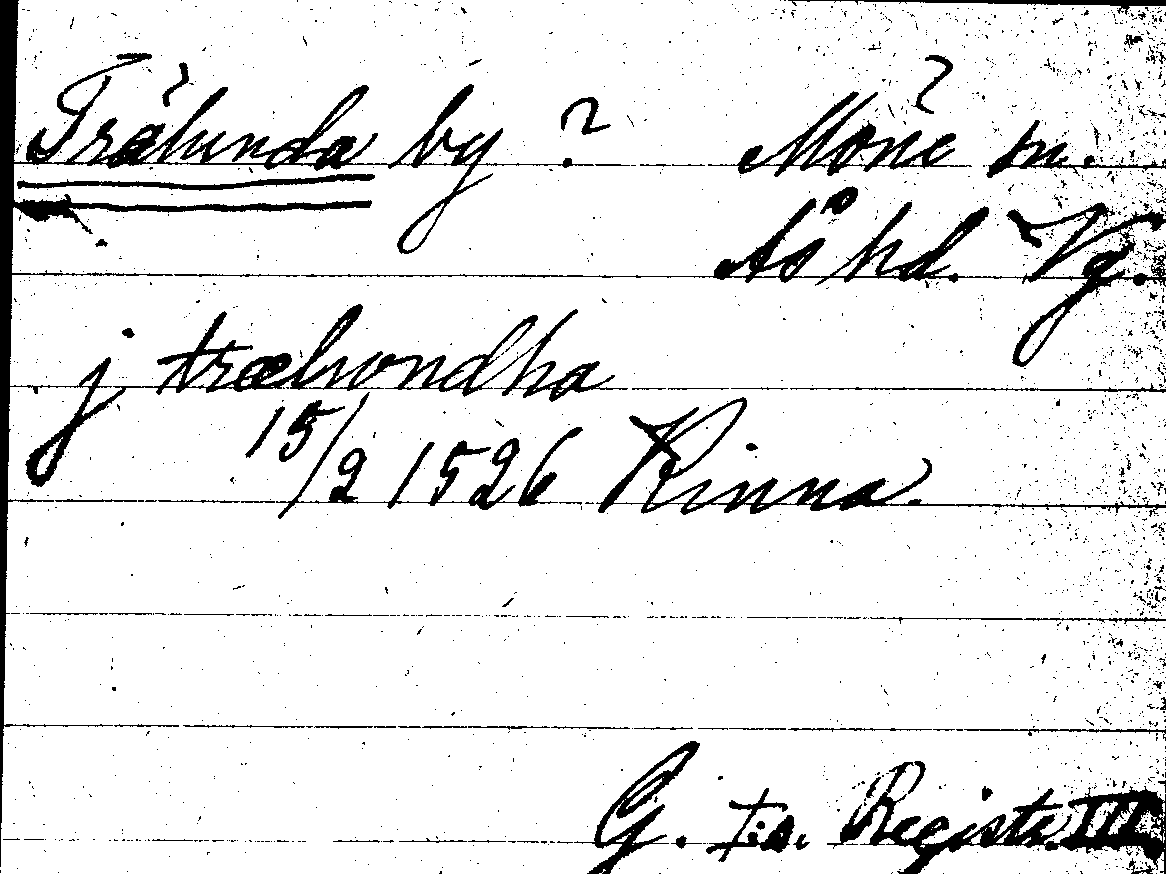 Trälunda by ? Möne sn. ?
Ås hd. Vg.
j trælwondha
15/2 1526 Kinna.
G. I:s. Registr. III